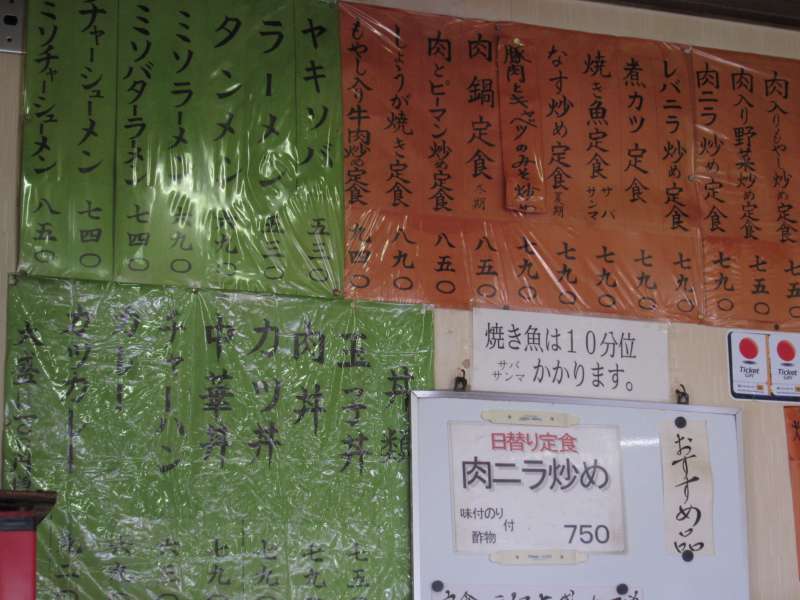 肉入りもやし炒め定食 七五〇
肉入り野菜炒め定食 七五〇
肉ニラ炒め定食 七五〇
レバニラ炒め定食 七九〇
煮カツ定食 七九〇
焼き魚定食 サバ サンマ 七九〇
なす炒め定食 夏期 七九〇
豚肉とキャベツのみそ炒め 七九〇
肉鍋定食 冬期 八五〇
肉とピーマン炒め定食 八五〇
しょうが焼き定食 八九〇
もやし入り牛肉炒め定食 九四〇
ヤキソバ 五三〇
ラーメン 五三〇
タンメン 六九〇
ミソラーメン 六九〇
ミソバターラーメン 七四〇
チャーシューメン 七四〇
ミソチャーシューメン 八五〇
丼類
玉子丼 七五
肉丼 七九
カツ丼 七九
中華丼 七九
チャーハン 六三
カレー 六九
カツカレー 九二〇
焼き魚は10分位
サバ
サンマ かかります。
Ticket
Ticket
日替り定食
肉ニラ炒め
味付のり
酢物 付 750
おすすめ品